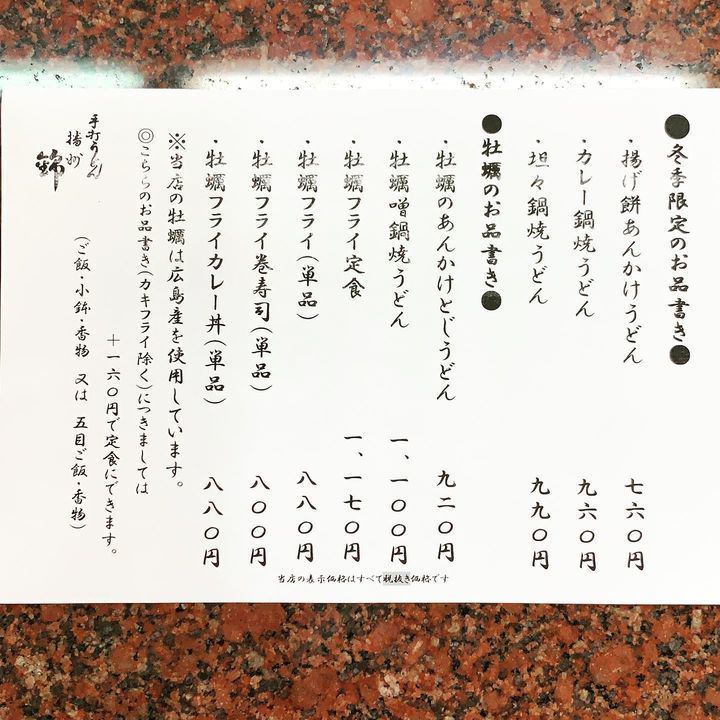 ●冬季限定のお品書き●
・揚げ餅あんかけうどん 七六〇円
・カレー鍋焼うどん 九六〇円
・坦々鍋焼うどん 九九〇円
●牡蠣のお品書き●
・牡蠣のあんかけとじうどん 九二〇円
・牡蠣噌鍋焼うどん 一、一〇〇円
・牡蠣フライ定食 一、一七〇円
・牡蠣フライ(単品) 八八〇円
・牡蠣フライ巻寿司(単品) 八〇〇円
・牡蠣フライカレー丼(単品) 八八〇円
※当店の牡蠣は広島産を使用しています。
◎こちらのお品書き(カキフライ除く)につきましては
＋一六〇円で定食にできます。
(ご飯・小鉢・香物 又は 五目ご飯・香物)
手打うどん
播州
錦
当店の表示価格はすべて税抜き価格です